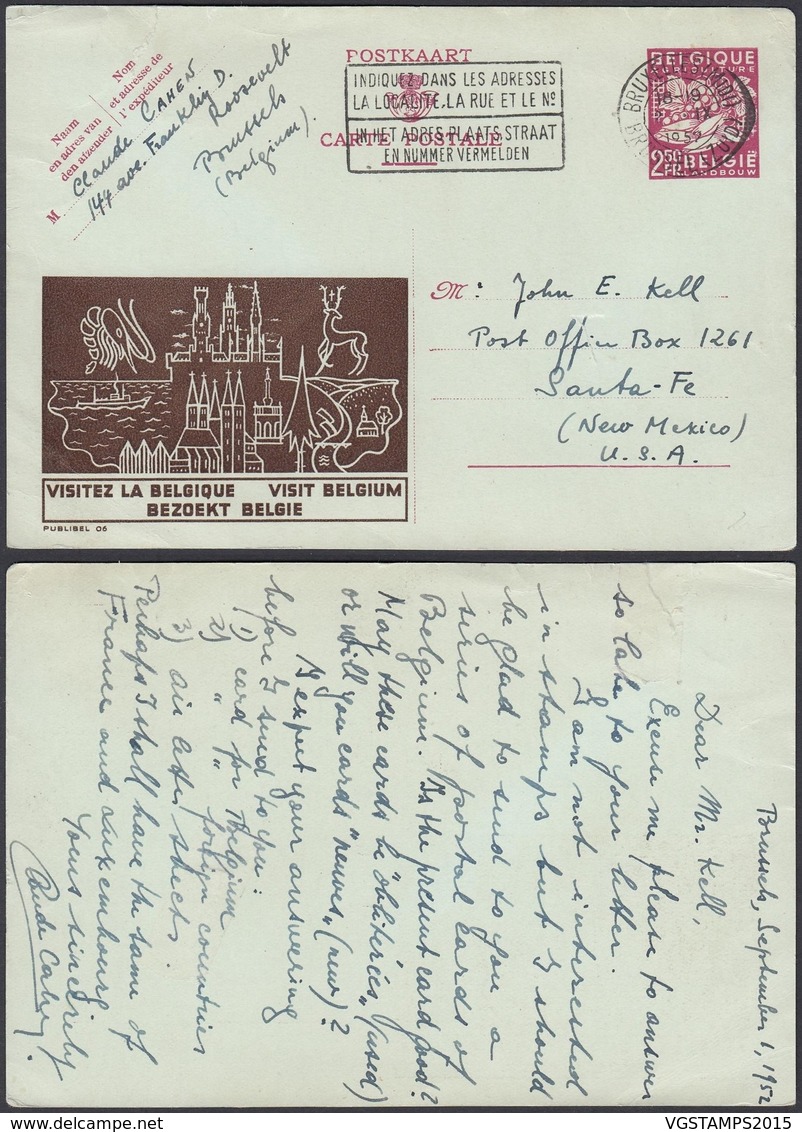 Naam
en adres van
den afzender
Nom
et adresse de
l'expéditeur
M Claude CAHEN
144 ave. Franklin D.
Roosevelt
Brussels
(Belgium).
POSTKAART
CARTE POSTALE
INDIQUEZ DANS LES ADRESSES
LA LOCALITE, LA RUE ET LE No
IN HET ADRES PLAATS, STRAAT
EN NUMMER VERMELDEN
18-19
IX
1952
BELGIQUE
AGRICULTURE
2 50 FR. BELGIË
LANDBOUW
M: John E. Kell
Post Office Box 1261
Santa-Fe
(New Mexico)
U.S.A.
VISITEZ LA BELGIQUE VISIT BELGIUM
BEZOEKT BELGIE
PUBLIBEL 06
Brussels, September 1, 1952
Dear Mr. Kell,
Excuse me please to answer
so late to your letter.
I am not interested
in stamps but I should
be glad to send to you a
series of postal cards of
Belgium. Is the present card good?
May these cards be "oblitérées" (used)
or will you cards "neuves" (new)?
I expect your answering
before I send to you:
1) card for Belgium
2) " " foreign countries
3) air letter sheets.
Perhaps I shall have the same of
France and Luxembourg
Yours sincerely
Claude Cahen
VGSTAMPS2015